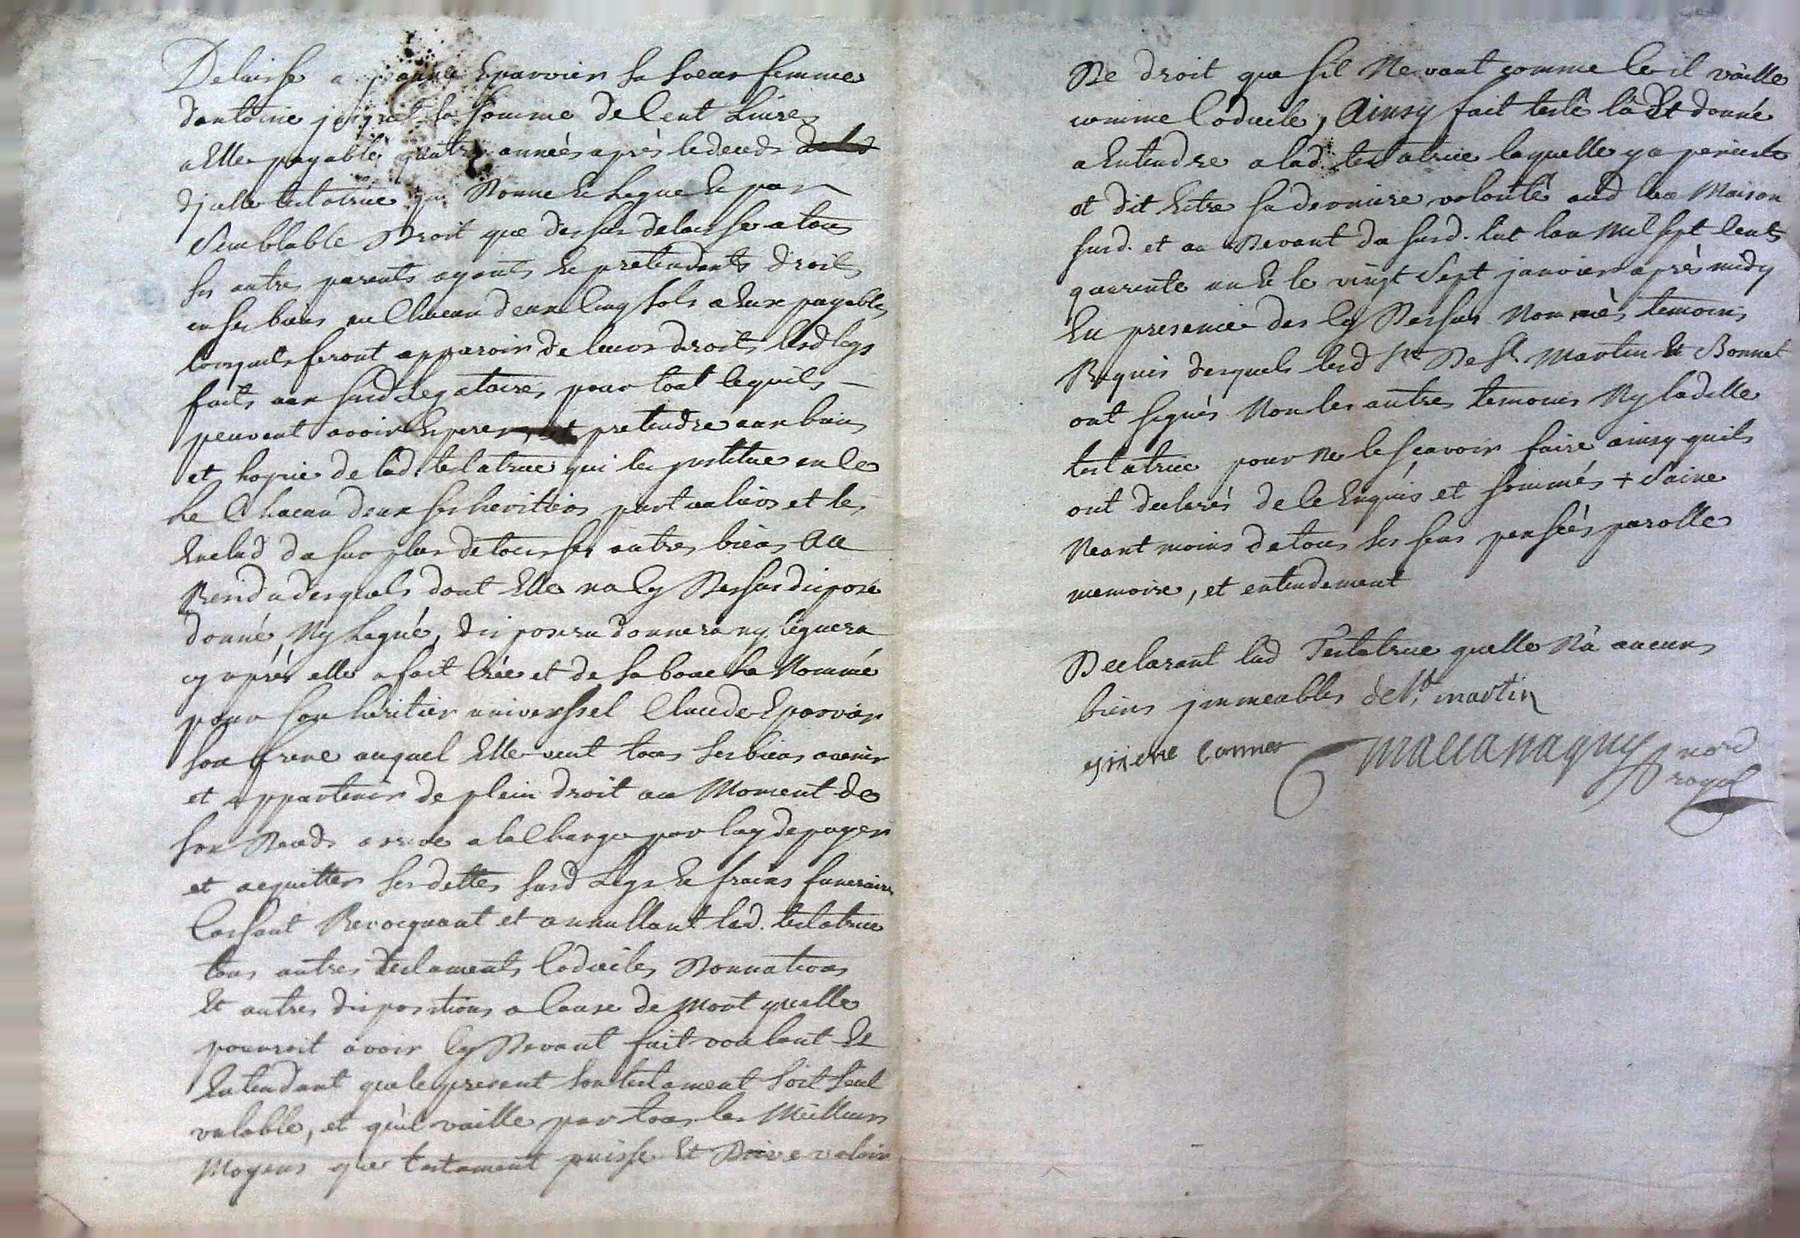 Delaisse a jeanne Eparvier sa soeur femme
dantoine la somme de Cent Livres
a Elle payable quatre années après le deceds
djcelle testatrice qui Donne et Legue et par
Semblable Droit que dessus delaisse a tous
ses autres parents ayants et pretendants droits
en ses biens a Chacun deux Cinq sols a Eux payables
lorsquils feront apparoir de leurs droits lesd legs
faits aux susd legataires pour tout ce quils
peuvent avoir Esperer et pretendre aux biens
et hoirie de lad. testatrice qui les jnstitue en ce
Chacun deux ses heritiers particuliers et les
Exclud du surplus de tous ses autres biens Au
Residu desquels dont Elle na Cy Dessus disposé
donné, Ny Legué, disposera donnera ny leguera
cy après elle a fait Créé et de sa bouche Nommé
pour son heritier universsel Claude Eparvier
son frere auquel Elle veut tous ses biens avenir
et appartenir de plein droit au Moment de
son Deceds arrivé a la Charge par luy de payer
et acquitter ses dettes susd Legs et fraix funeraires
Cassant Revocquant et annullant lad. testatrice
tous autres testaments Codiciles Donnations
Et autres dispositions a Cause de Mort quelle
pourroit avoir Cy Devant fait voulant Et
Entendant que le present son testament soit seul
valable, et quil vaille par tous les Meilleurs
Moyens que testament puisse Et Doive valoir
De droit que sil Ne vaut comme tel il vaille
comme Codicile, Ainsy fait testé lû Et donné
a Entendre a lad. testatrice laquelle y a persisté
et dit Estre sa derniere volonté aud lieu Maison
susd. et au Devant du susd. lut lan Mil sept Cents
quarente un Et le vingt sept janvier après midy
En presence des Cy Dessus Nommés temoins
Requis desquels led Sr. De St. Martin Et Bonnet
ont signés Non les autres temoins Ny ladite
testatrice pour Ne le sçavoir faire ainsy quils
ont declarés de ce Enquis et sommés + saine
Neant moins de tous ses sens pensées parolle
memoire, et entendement
Declarant lad Testatrice quelle Nà aucuns
biens jmmeubles de St. martin
royal